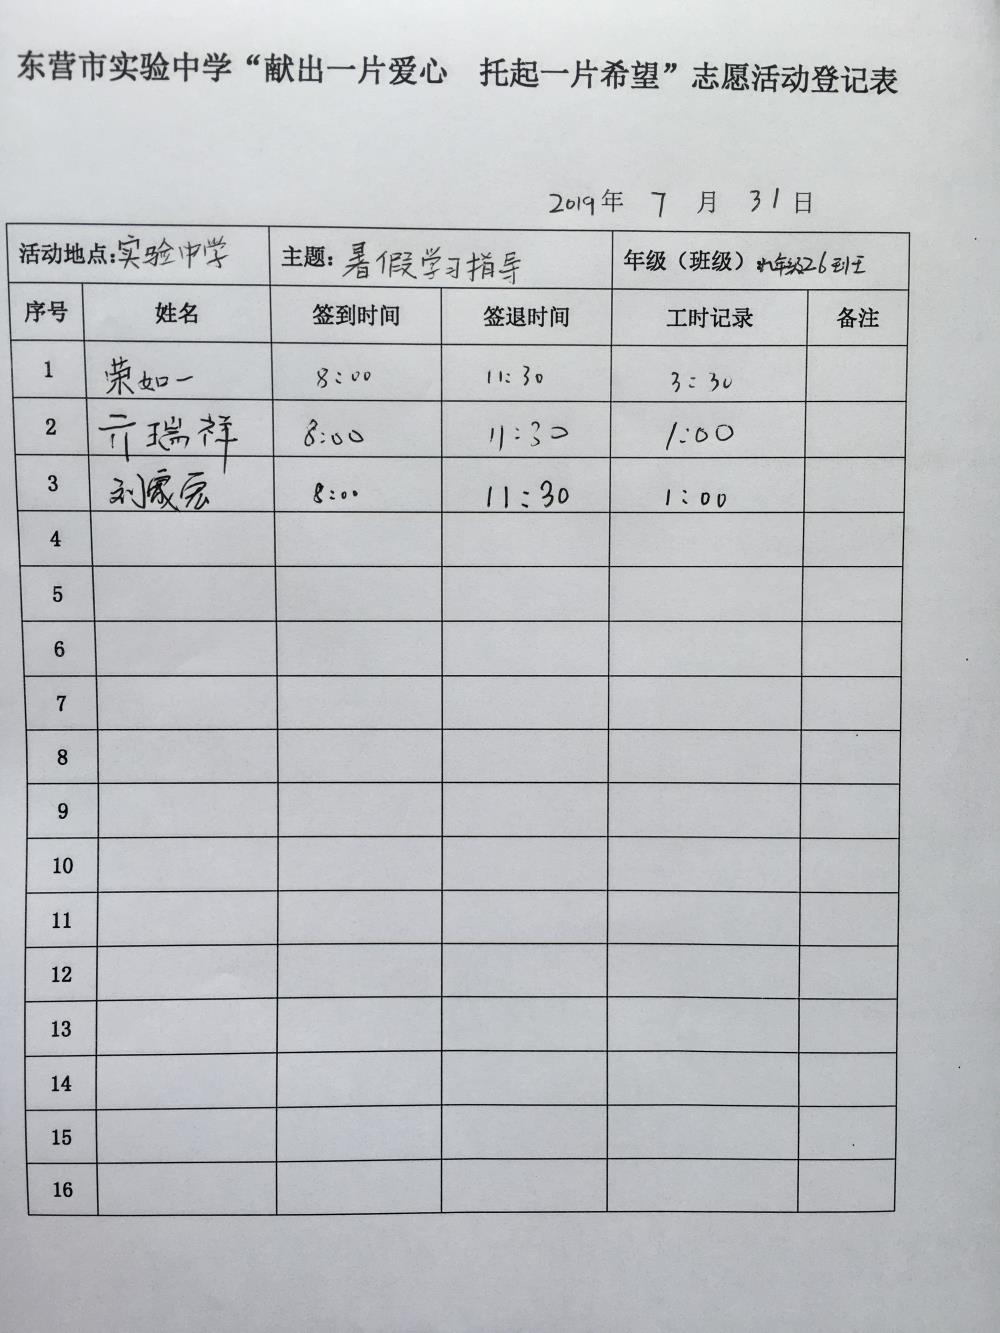 东营市实验中学“献出一片爱心 托起一片希望”志愿活动登记表
2019年 7 月 31日
活动地点:实验中学 主题:暑假学习指导 年级（班级）九年级26班
序号 姓名 签到时间 签退时间 工时记录 备注
1 荣如一 8:00 11:30 3:30
2 亓瑞祥 8:00 11:30 1:00
3 刘家宏 8:00 11:30 1:00
4
5
6
7
8
9
10
11
12
13
14
15
16